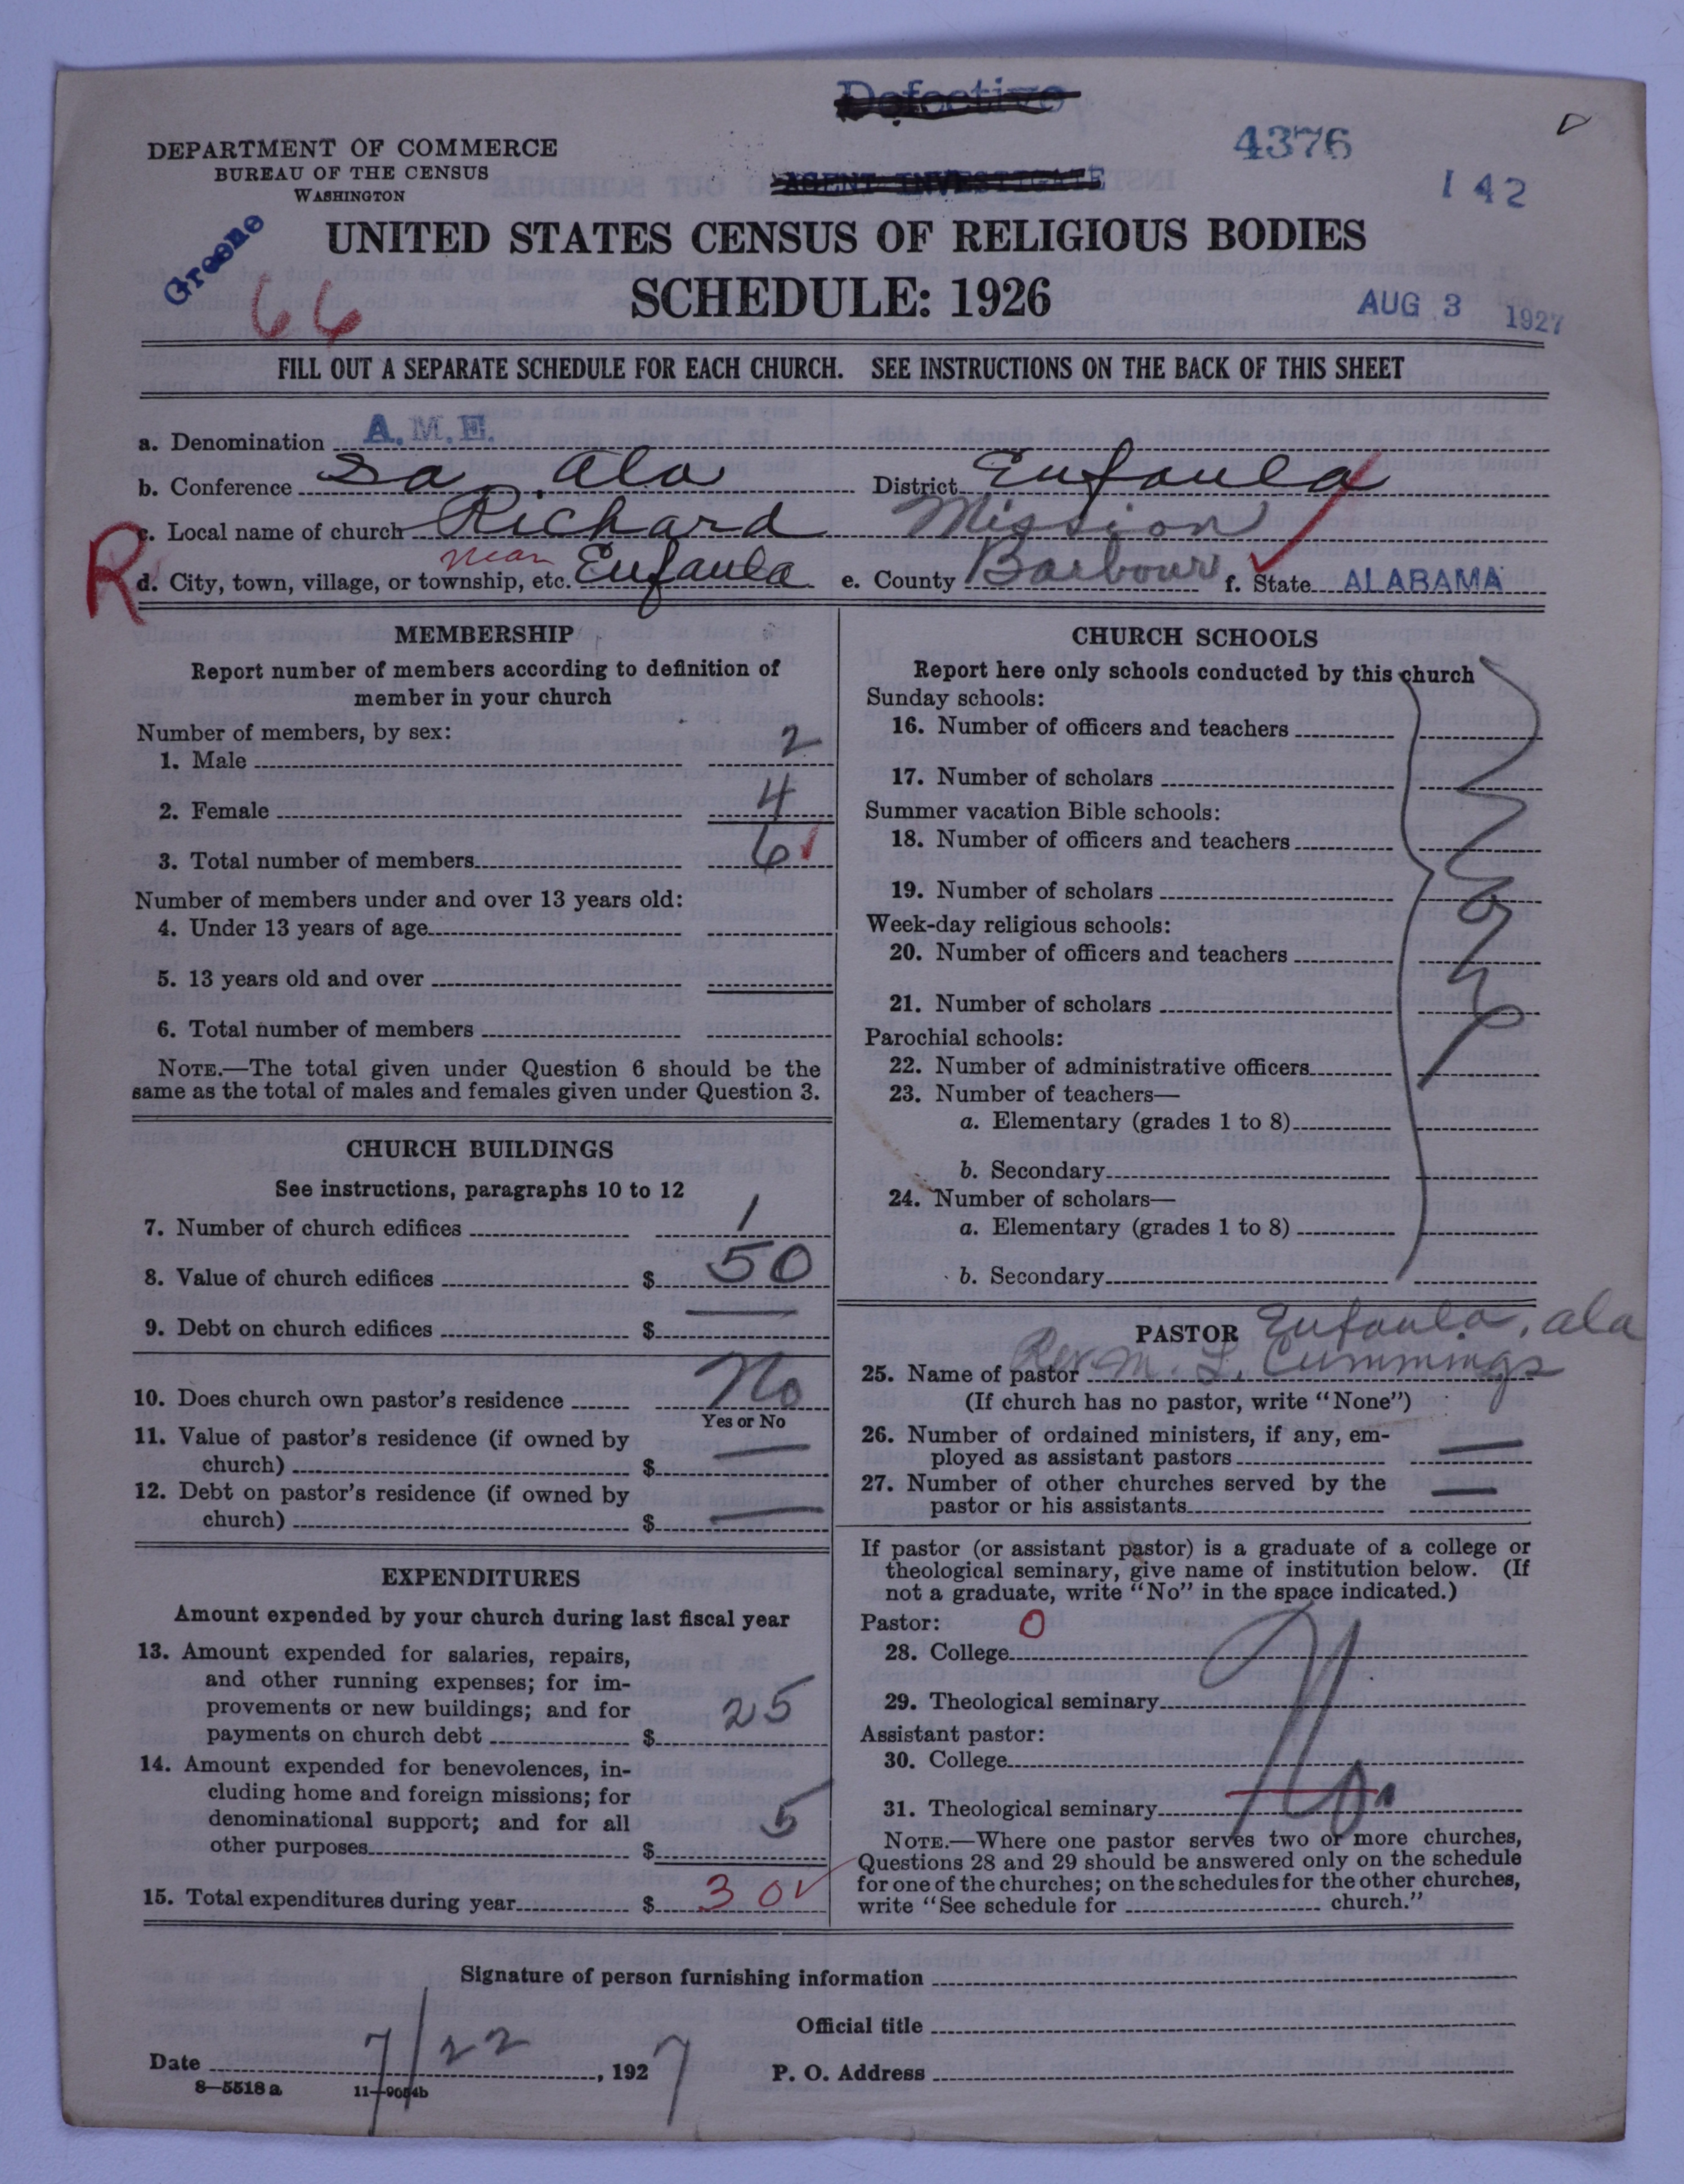 Defective
DEPARTMENT OF COMMERCE
BUREAU OF THE CENSUS
WASHINGTON
4376
AGENT INVESTIGATE
142
Greene
66
UNITED STATES CENSUS OF RELIGIOUS BODIES
SCHEDULE: 1926
AUG 3 1927
FILL OUT A SEPARATE SCHEDULE FOR EACH CHURCH. SEE INSTRUCTIONS ON THE BACK OF THIS SHEET
a. Denomination A.M.E.
b. Conference So. Ala District Eufaula
c. Local name of church Richard Mission
R
d. City, town, village, or township, etc. near Eufaula e. County Barbour f. State ALABAMA
MEMBERSHIP
Report number of members according to definition of
member in your church
Number of members, by sex:
1. Male 2
2. Female 4
3. Total number of members 6
Number of members under and over 13 years old:
4. Under 13 years of age
5. 13 years old and over
6. Total number of members
NOTE.—The total given under Question 6 should be the
same as the total of males and females given under Question 3.
CHURCH BUILDINGS
See instructions, paragraphs 10 to 12
7. Number of church edifices 1
8. Value of church edifices $ 50
9. Debt on church edifices $ —
10. Does church own pastor's residence No
Yes or No
11. Value of pastor's residence (if owned by
church) $ —
12. Debt on pastor's residence (if owned by
church) $ —
EXPENDITURES
Amount expended by your church during last fiscal year
13. Amount expended for salaries, repairs,
and other running expenses; for im-
provements or new buildings; and for
payments on church debt $ 25
14. Amount expended for benevolences, in-
cluding home and foreign missions; for
denominational support; and for all
other purposes $ 5
15. Total expenditures during year $ 30
CHURCH SCHOOLS
Report here only schools conducted by this church
Sunday schools:
16. Number of officers and teachers
17. Number of scholars
Summer vacation Bible schools:
18. Number of officers and teachers
19. Number of scholars
Week-day religious schools:
20. Number of officers and teachers
21. Number of scholars
Parochial schools:
22. Number of administrative officers
23. Number of teachers—
a. Elementary (grades 1 to 8)
b. Secondary
24. Number of scholars—
a. Elementary (grades 1 to 8)
b. Secondary
None
PASTOR Eufaula, ala
25. Name of pastor Rev. M. L. Cummings
(If church has no pastor, write "None")
26. Number of ordained ministers, if any, em-
ployed as assistant pastors —
27. Number of other churches served by the
pastor or his assistants —
If pastor (or assistant pastor) is a graduate of a college or
theological seminary, give name of institution below. (If
not a graduate, write "No" in the space indicated.)
Pastor: 0
28. College
29. Theological seminary
Assistant pastor:
30. College
31. Theological seminary
No
NOTE.—Where one pastor serves two or more churches,
Questions 28 and 29 should be answered only on the schedule
for one of the churches; on the schedules for the other churches,
write "See schedule for church."
Signature of person furnishing information
Official title
Date 7/22, 1927 P. O. Address
8—5518a 11—9054b